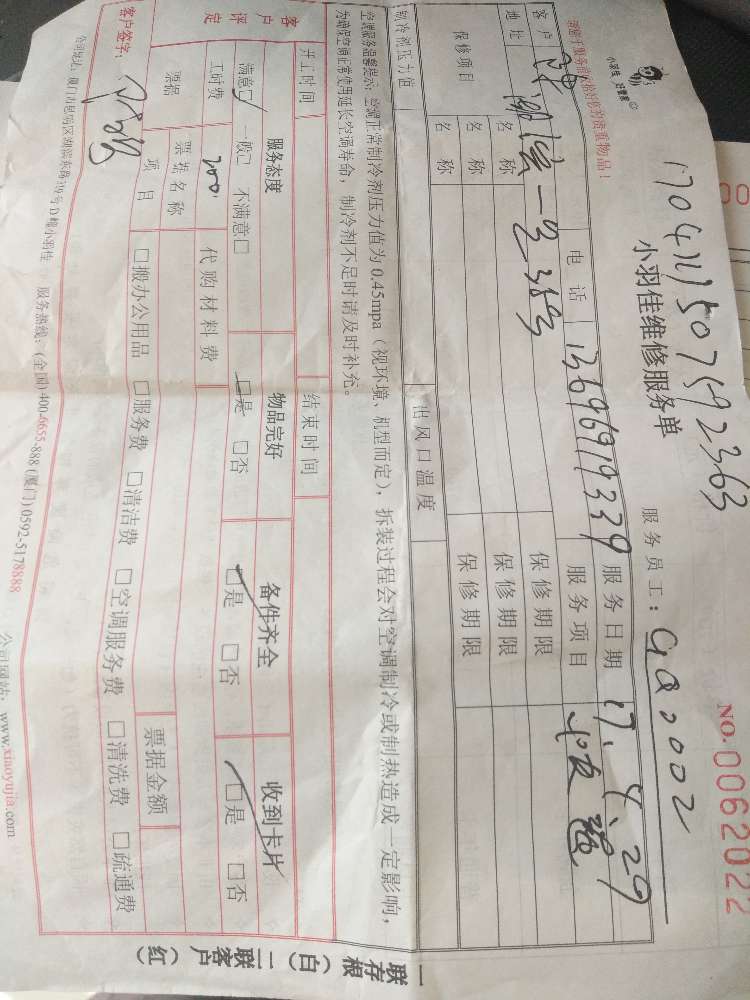 小羽佳 好管家
170411150752363
NO.0062022
小羽佳维修服务单
服务员工：GQ0002
请您于服务前收拾好您的贵重物品！
客户 电话 13696919339 服务日期 17.4.29
地址 服务项目
保修项目 名称 保修期限
名称 保修期限
名称 保修期限
制冷剂压力值 出风口温度
空调服务温馨提示：空调正常制冷剂压力值为0.45mpa（视环境、机型而定），拆装过程会对空调制冷或制热造成一定影响，
为确保空调正常使用延长空调寿命，制冷剂不足时请及时补充。
开工时间 结束时间
客户评定 服务态度 物品完好 备件齐全 收到卡片
满意□ 一般□ 不满意□ □是 □否 □是 □否 □是 □否
工时费 200 代购材料费
票据 票据名称 票据金额
项目 □搬办公用品 □服务费 □清洁费 □空调服务费 □清洗费 □疏通费
客户签字：
服务热线：（全国）400-6655-888（厦门）0592-5178888 公司网站：www.xiaoyujia.com
一联存根（白） 二联客户（红）